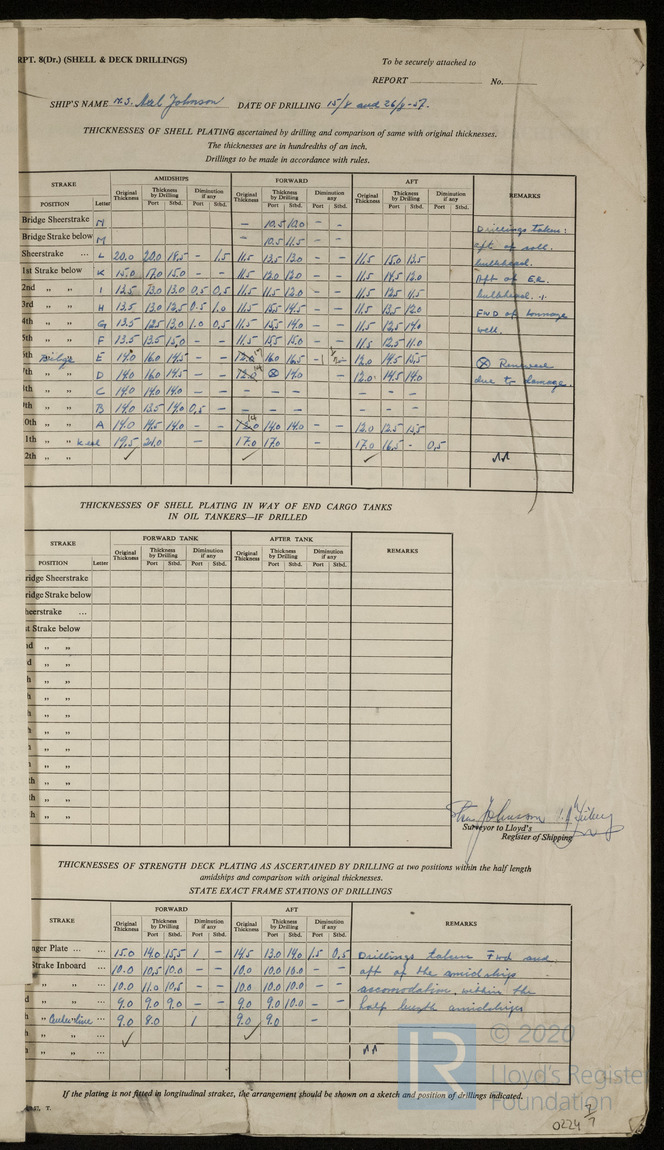 RPT. 8(Dr.) (SHELL & DECK DRILLINGS)
To be securely attached to
REPORT No.
SHIP'S NAME Johnson DATE OF DRILLING 15/8 and 26/8-57.
THICKNESSES OF SHELL PLATING ascertained by drilling and comparison of same with original thicknesses.
The thicknesses are in hundredths of an inch.
Drillings to be made in accordance with rules.
STRAKE AMIDSHIPS FORWARD AFT REMARKS
POSITION Letter Original Thickness Thickness by Drilling Diminution if any Original Thickness Thickness by Drilling Diminution if any Original Thickness Thickness by Drilling Diminution if any
Port Stbd. Port Stbd. Port Stbd. Port Stbd. Port Stbd. Port Stbd.
Bridge Sheerstrake N - 10.5 - - Drillings taken:
Bridge Strake below M 10.5 11.5 - -
Sheerstrake ... L 20.0 20.0 18.5 - 1.5 11.5 13.5 13.0 - - 11.5 15.0 12.5 bulkhead.
1st Strake below K 15.0 17.0 15.0 - - 11.5 12.0 12.0 - - 11.5 14.5 12.0 Aft of E.R.
2nd " " I 13.5 13.0 13.0 0.5 0.5 11.5 11.5 12.0 - - 11.5 12.5 11.5 bulkhead.
3rd " " H 13.5 13.0 12.5 0.5 1.0 11.5 15.5 14.5 - - 11.5 13.5 12.0 FWD of tonnage
4th " " G 13.5 12.5 13.0 1.0 0.5 11.5 15.5 14.0 - - 11.5 12.5 14.0 well.
5th " " F 13.5 13.5 15.0 - - 11.5 15.5 15.0 - - 11.5 12.5 11.0
6th Bilge E 14.0 16.0 14.5 - - 16.0 16.5 12.0 14.5 15.5 ⊗ Renewed
7th " " D 14.0 16.0 14.5 - - ⊗ 14.0 - 12.0 14.5 14.0 due to damage.
" " C 14.0 14.0 14.0 - - - - - - - - -
9th " " B 14.0 13.5 14.0 0.5 - - - - - - - - -
0th " " A 14.0 14.5 14.0 - - 14.0 14.0 - - 12.0 12.5 15.5
1th " " keel 19.5 21.0 - 17.0 17.0 - 17.0 16.5 - 0.5
2th " " ✓ ✓ ✓
THICKNESSES OF SHELL PLATING IN WAY OF END CARGO TANKS
IN OIL TANKERS—IF DRILLED
STRAKE FORWARD TANK AFTER TANK REMARKS
POSITION Letter Original Thickness Thickness by Drilling Diminution if any Original Thickness Thickness by Drilling Diminution if any
Port Stbd. Port Stbd. Port Stbd. Port Stbd.
ridge Sheerstrake
ridge Strake below
heerstrake ...
st Strake below
nd " "
d " "
h " "
h " "
h " "
h " "
h " "
h " "
th " "
th " "
h " "
Johnson
Surveyor to Lloyd's
Register of Shipping
THICKNESSES OF STRENGTH DECK PLATING AS ASCERTAINED BY DRILLING at two positions within the half length
amidships and comparison with original thicknesses.
STATE EXACT FRAME STATIONS OF DRILLINGS
STRAKE FORWARD AFT REMARKS
Original Thickness Thickness by Drilling Diminution if any Original Thickness Thickness by Drilling Diminution if any
Port Stbd. Port Stbd. Port Stbd. Port Stbd.
nger Plate ... ... 15.0 14.0 15.5 1 - 14.5 13.0 14.0 1.5 0.5 Drillings taken Fwd and
Strake Inboard ... 10.0 10.5 10.0 - - 10.0 10.0 10.0 - - aft of the amidships
" " ... 10.0 11.0 10.5 - - 10.0 10.0 10.0 - - accomodation, within the
d " " ... 9.0 9.0 9.0 - - 9.0 9.0 10.0 - - half length amidships
h " Centerline ... 9.0 8.0 1 9.0 9.0 -
h " " ... ✓ ✓
h " " ...
If the plating is not fitted in longitudinal strakes, the arrangement should be shown on a sketch and position of drillings indicated.
© 2020
Lloyd's Register
Foundation
T.
0224